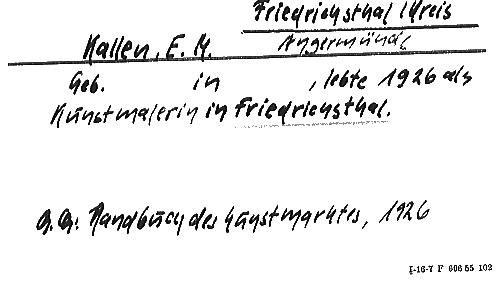 Friedrichsthal Kreis
Angermünde
Hallen, E. M.
Geb. in , lebte 1926 als
Kunstmalerin in Friedrichsthal.
Q.Q: Handbuch des Kunstmarktes, 1926
I-16-7 F 606 55 102